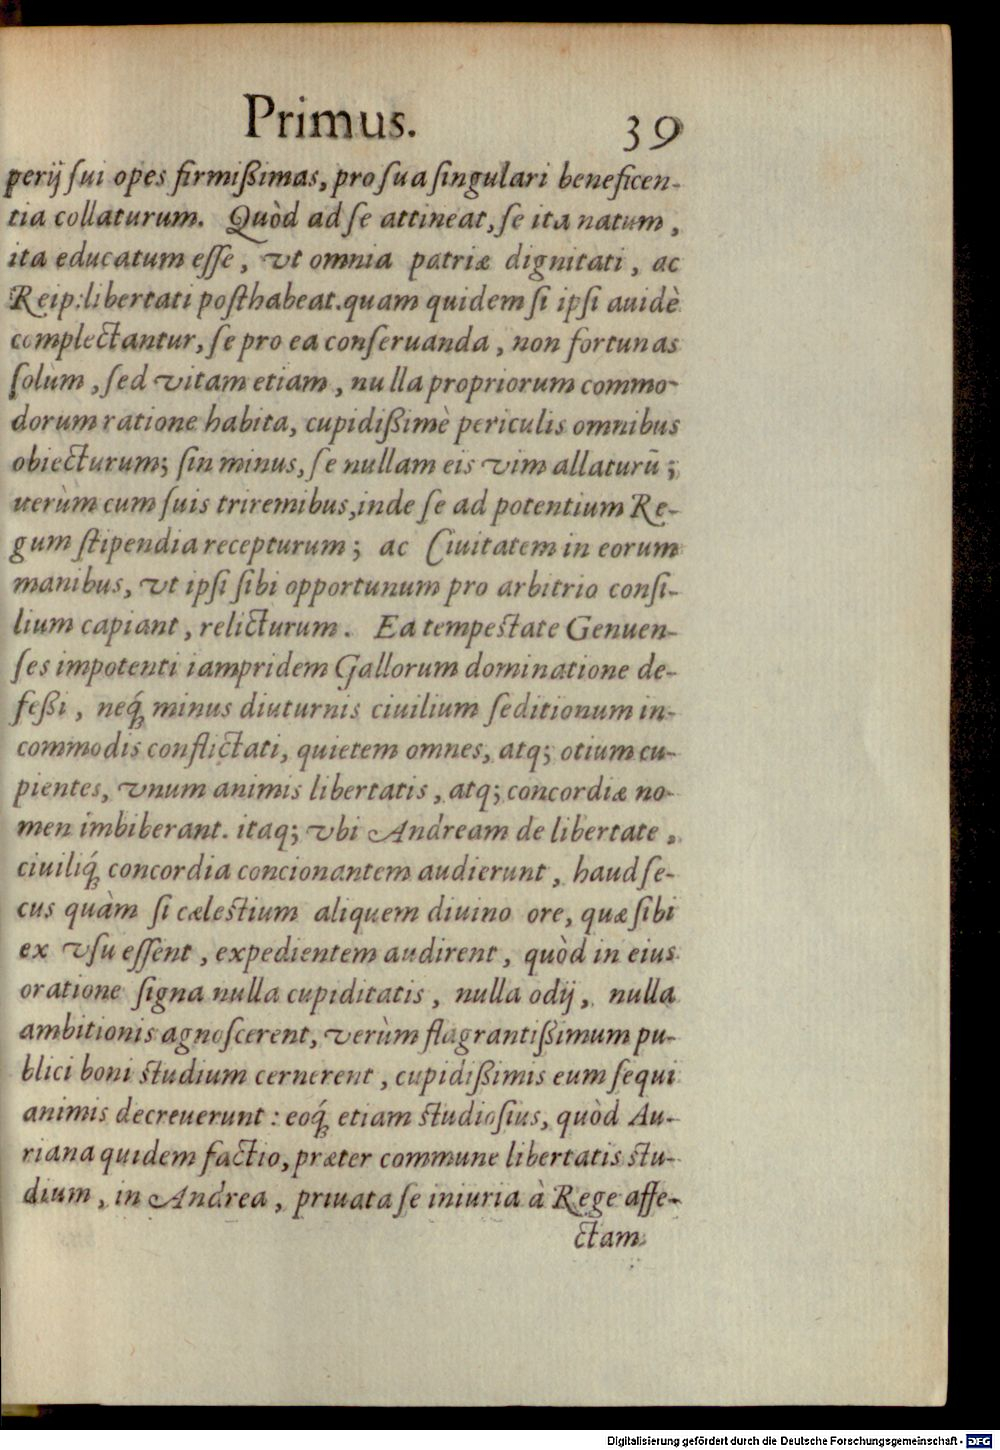 Primus. 39
perij sui opes firmißimas, pro sua singulari beneficen-
tia collaturum. Quòd ad se attineat, se ita natum,
ita educatum esse, vt omnia patriæ dignitati, ac
Reip. libertati posthabeat. quam quidem si ipsi auidè
complectantur, se pro ea conseruanda, non fortunas
solùm, sed vitam etiam, nulla propriorum commo-
dorum ratione habita, cupidißimè periculis omnibus
obiecturum; sin minus, se nullam eis vim allaturū;
uerùm cum suis triremibus, inde se ad potentium Re-
gum stipendia recepturum; ac Ciuitatem in eorum
manibus, vt ipsi sibi opportunum pro arbitrio consi-
lium capiant, relicturum. Ea tempestate Genuen-
ses impotenti iampridem Gallorum dominatione de-
feßi, neq́; minus diuturnis ciuilium seditionum in-
commodis conflictati, quietem omnes, atq; otium cu-
pientes, vnum animis libertatis, atq; concordiæ no-
men imbiberant. itaq; vbi Andream de libertate,
ciuiliq́; concordia concionantem audierunt, haud se-
cus quàm si cælestium aliquem diuino ore, quæ sibi
ex vsu essent, expedientem audirent, quòd in eius
oratione signa nulla cupiditatis, nulla odij, nulla
ambitionis agnoscerent, verùm flagrantißimum pu-
blici boni studium cernerent, cupidißimis eum sequi
animis decreuerunt: eoq́; etiam studiosius, quòd Au-
riana quidem factio, præter commune libertatis stu-
dium, in Andrea, priuata se iniuria à Rege affe-
ctam
Digitalisierung gefördert durch die Deutsche Forschungsgemeinschaft - DFG